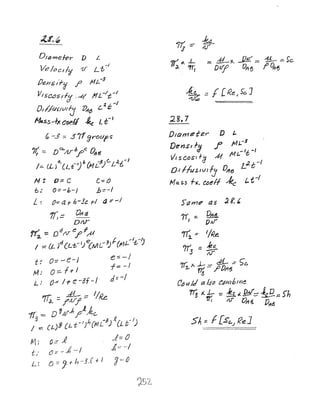 28.6
Diameter D L
Velocity v Lt⁻¹
Density ρ ML⁻³
Viscosity μ ML⁻¹t⁻¹
Diffusivity D_AB L²t⁻¹
Mass-tx coeff k_c Lt⁻¹
6-3 = 3 π groups
π₁ = Dᵃvᵇρᶜ D_AB
1 = (L)ᵃ(Lt⁻¹)ᵇ(ML⁻³)ᶜ L²t⁻¹
M: 0=C C=0
t: 0=-b-1 b=-1
L: 0=a+b-3c+2 a=-1
π₁ = D_AB/Dv
π₂ = Dᵈvᵉρᶠμ
1 = (L)ᵈ(Lt⁻¹)ᵉ(ML⁻³)ᶠ(ML⁻¹t⁻¹)
t: 0=-e-1 e=-1
M: 0=f+1 f=-1
L: 0=d+e-3f-1 d=-1
π₂ = μ/ρvD = 1/Re
π₃ = Dᵍvʰρⁱk_c
1 = (L)ᵍ(Lt⁻¹)ʰ(ML⁻³)ⁱ(Lt⁻¹)
M: 0=i i=0
t: 0=-h-1 h=-1
L: 0=g+h-3i+1 g=0
π₃ = k_c/v
π₂ × 1/π₁ = μ/Dvρ × Dv/D_AB = μ/ρD_AB = Sc
k_c/v = f [Re, Sc]
28.7
Diameter D L
Density ρ ML⁻³
Viscosity μ ML⁻¹t⁻¹
Diffusivity D_AB L²t⁻¹
Mass tx. coeff k_c Lt⁻¹
Same as 28.6
π₁ = D_AB/Dv
π₂ = 1/Re
π₃ = k_c/v
π₂ × 1/π₁ = μ/ρD_AB = Sc
Could also combine
π₃ × 1/π₁ = k_c/v × Dv/D_AB = k_cD/D_AB = Sh
Sh = f [Sc, Re]
252